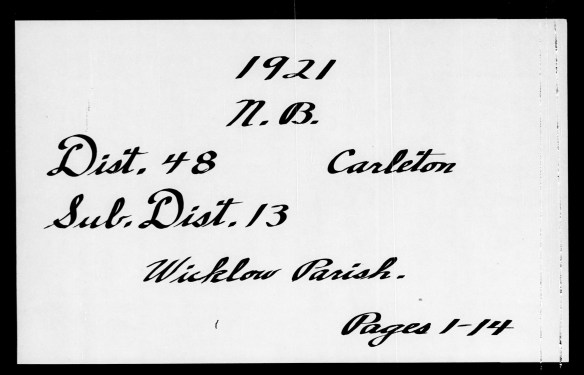 1921
N. B.
Dist. 48 Carleton
Sub. Dist. 13
Wicklow Parish.
Pages 1-14